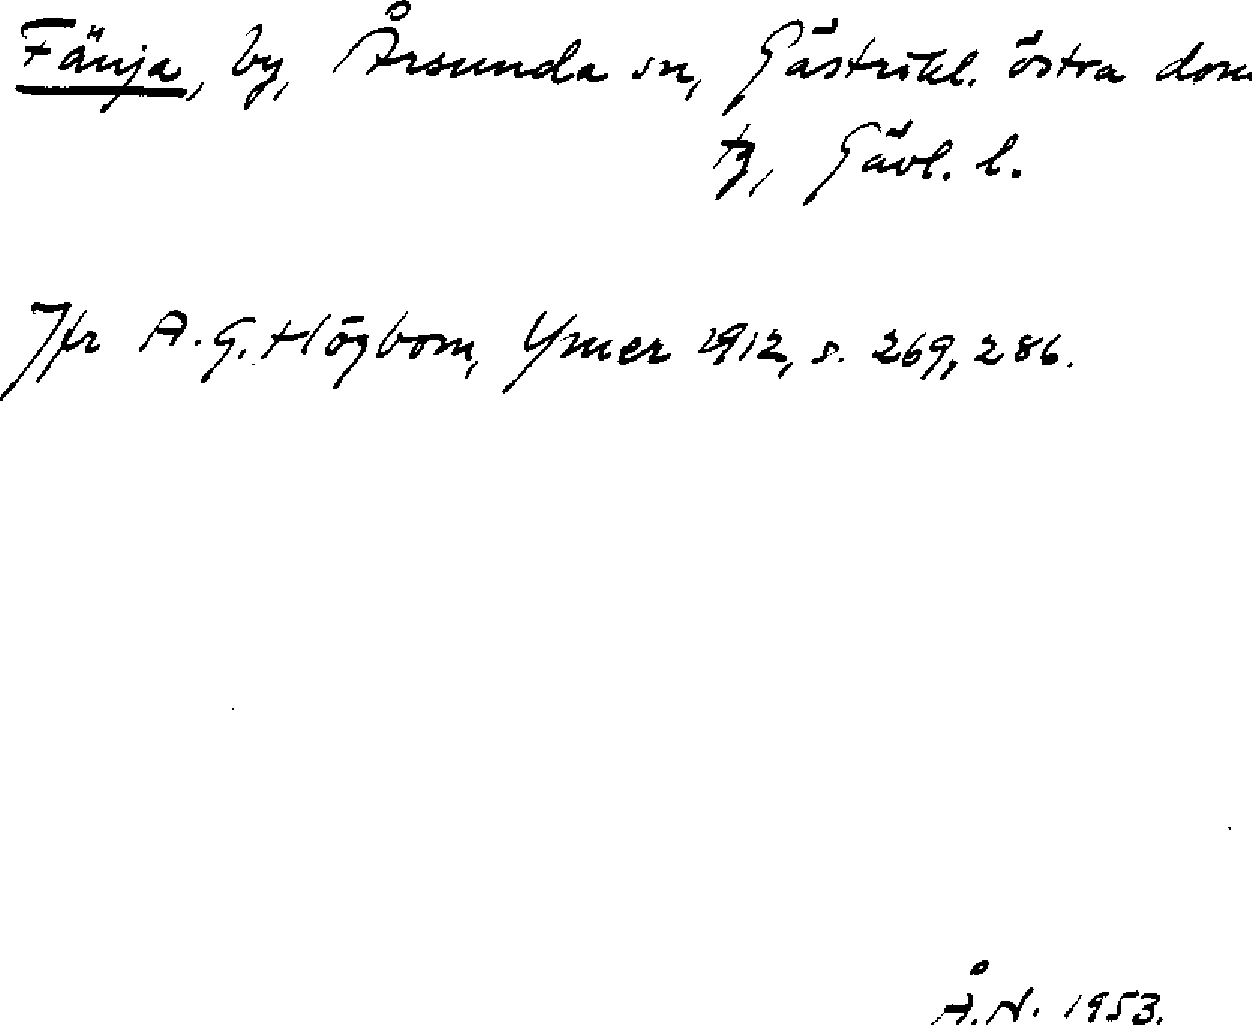 Fänja, by, Årsunda sn, Gästrikl. östra dom
tg, Gävl. l.
Jfr A. G. Högbom, Ymer 1912, s. 269, 286.
Å. N. 1953.